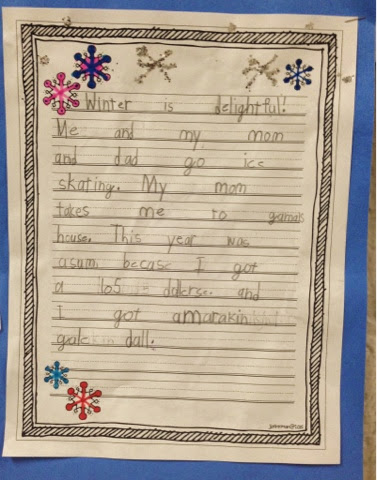 Winter is delightful!
Me and my mom
and dad go ice
skating. My mom
takes me to gramals
house. This year was
asum becase I got
a 165 dallerse. and
I got amarakin
gale dall.